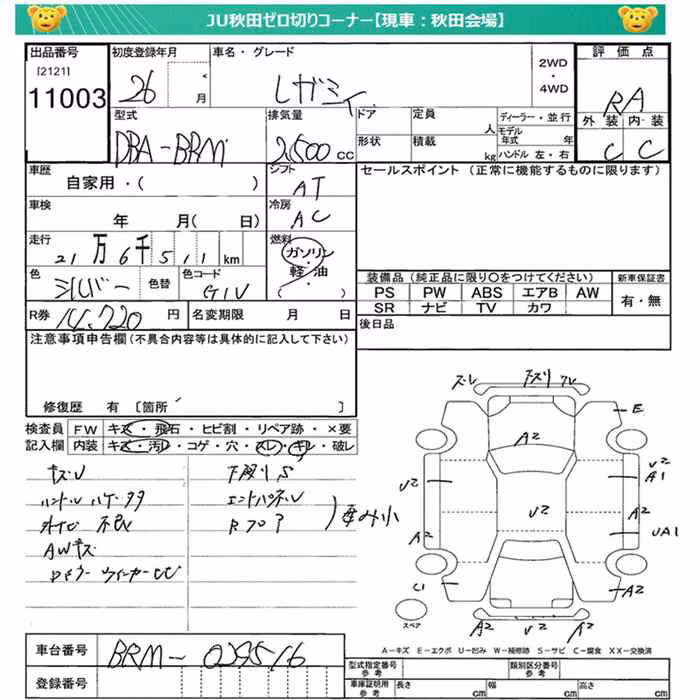 JU秋田ゼロ切りコーナー【現車：秋田会場】
出品番号 初度登録年月 車名・グレード 評価点
[2121]
11003 26 月 レガシィ 2WD・4WD RA
型式 排気量 ドア 定員 人 ディーラー・並行 外装 内装
DBA-BRM 2500 cc 形状 積載 kg モデル年式 年 ハンドル 左・右 C C
車歴 シフト セールスポイント（正常に機能するものに限ります）
自家用・（ ） AT
車検 冷房
年 月（ 日） AC
走行 燃料
21万6千511km ガソリン・軽油
（ ）
色 色替 色コード 装備品（純正品に限り○をつけてください） 新車保証書
シルバー G1U PS PW ABS エアB AW 有・無
SR ナビ TV カワ
R券 14,720 円 名変期限 月 日 後日品
注意事項申告欄（不具合内容等は具体的に記入して下さい）
修復歴 有 〔箇所 〕
検査員 FW キズ・飛石・ヒビ割・リペア跡・×要
記入欄 内装 キズ・汚レ・コゲ・穴・スレ・キレ・破レ
キズU 下廻りS
エンドパネル
外イロ 不良 Rフロア 歪み小
AWキズ
ズレ 下ズリ ズレ
E
A2
U2 U2
A1
U2
A2 A2
UA1
C1 A2
スペア
A2 A2
A－キズ E－エクボ U－凹み W－補修跡 S－サビ C－腐食 XX－交換済
車台番号 BRM-029516
登録番号
型式指定番号 参考 類別区分番号 参考
車庫証明用 参考 長さ cm 幅 cm 高さ cm